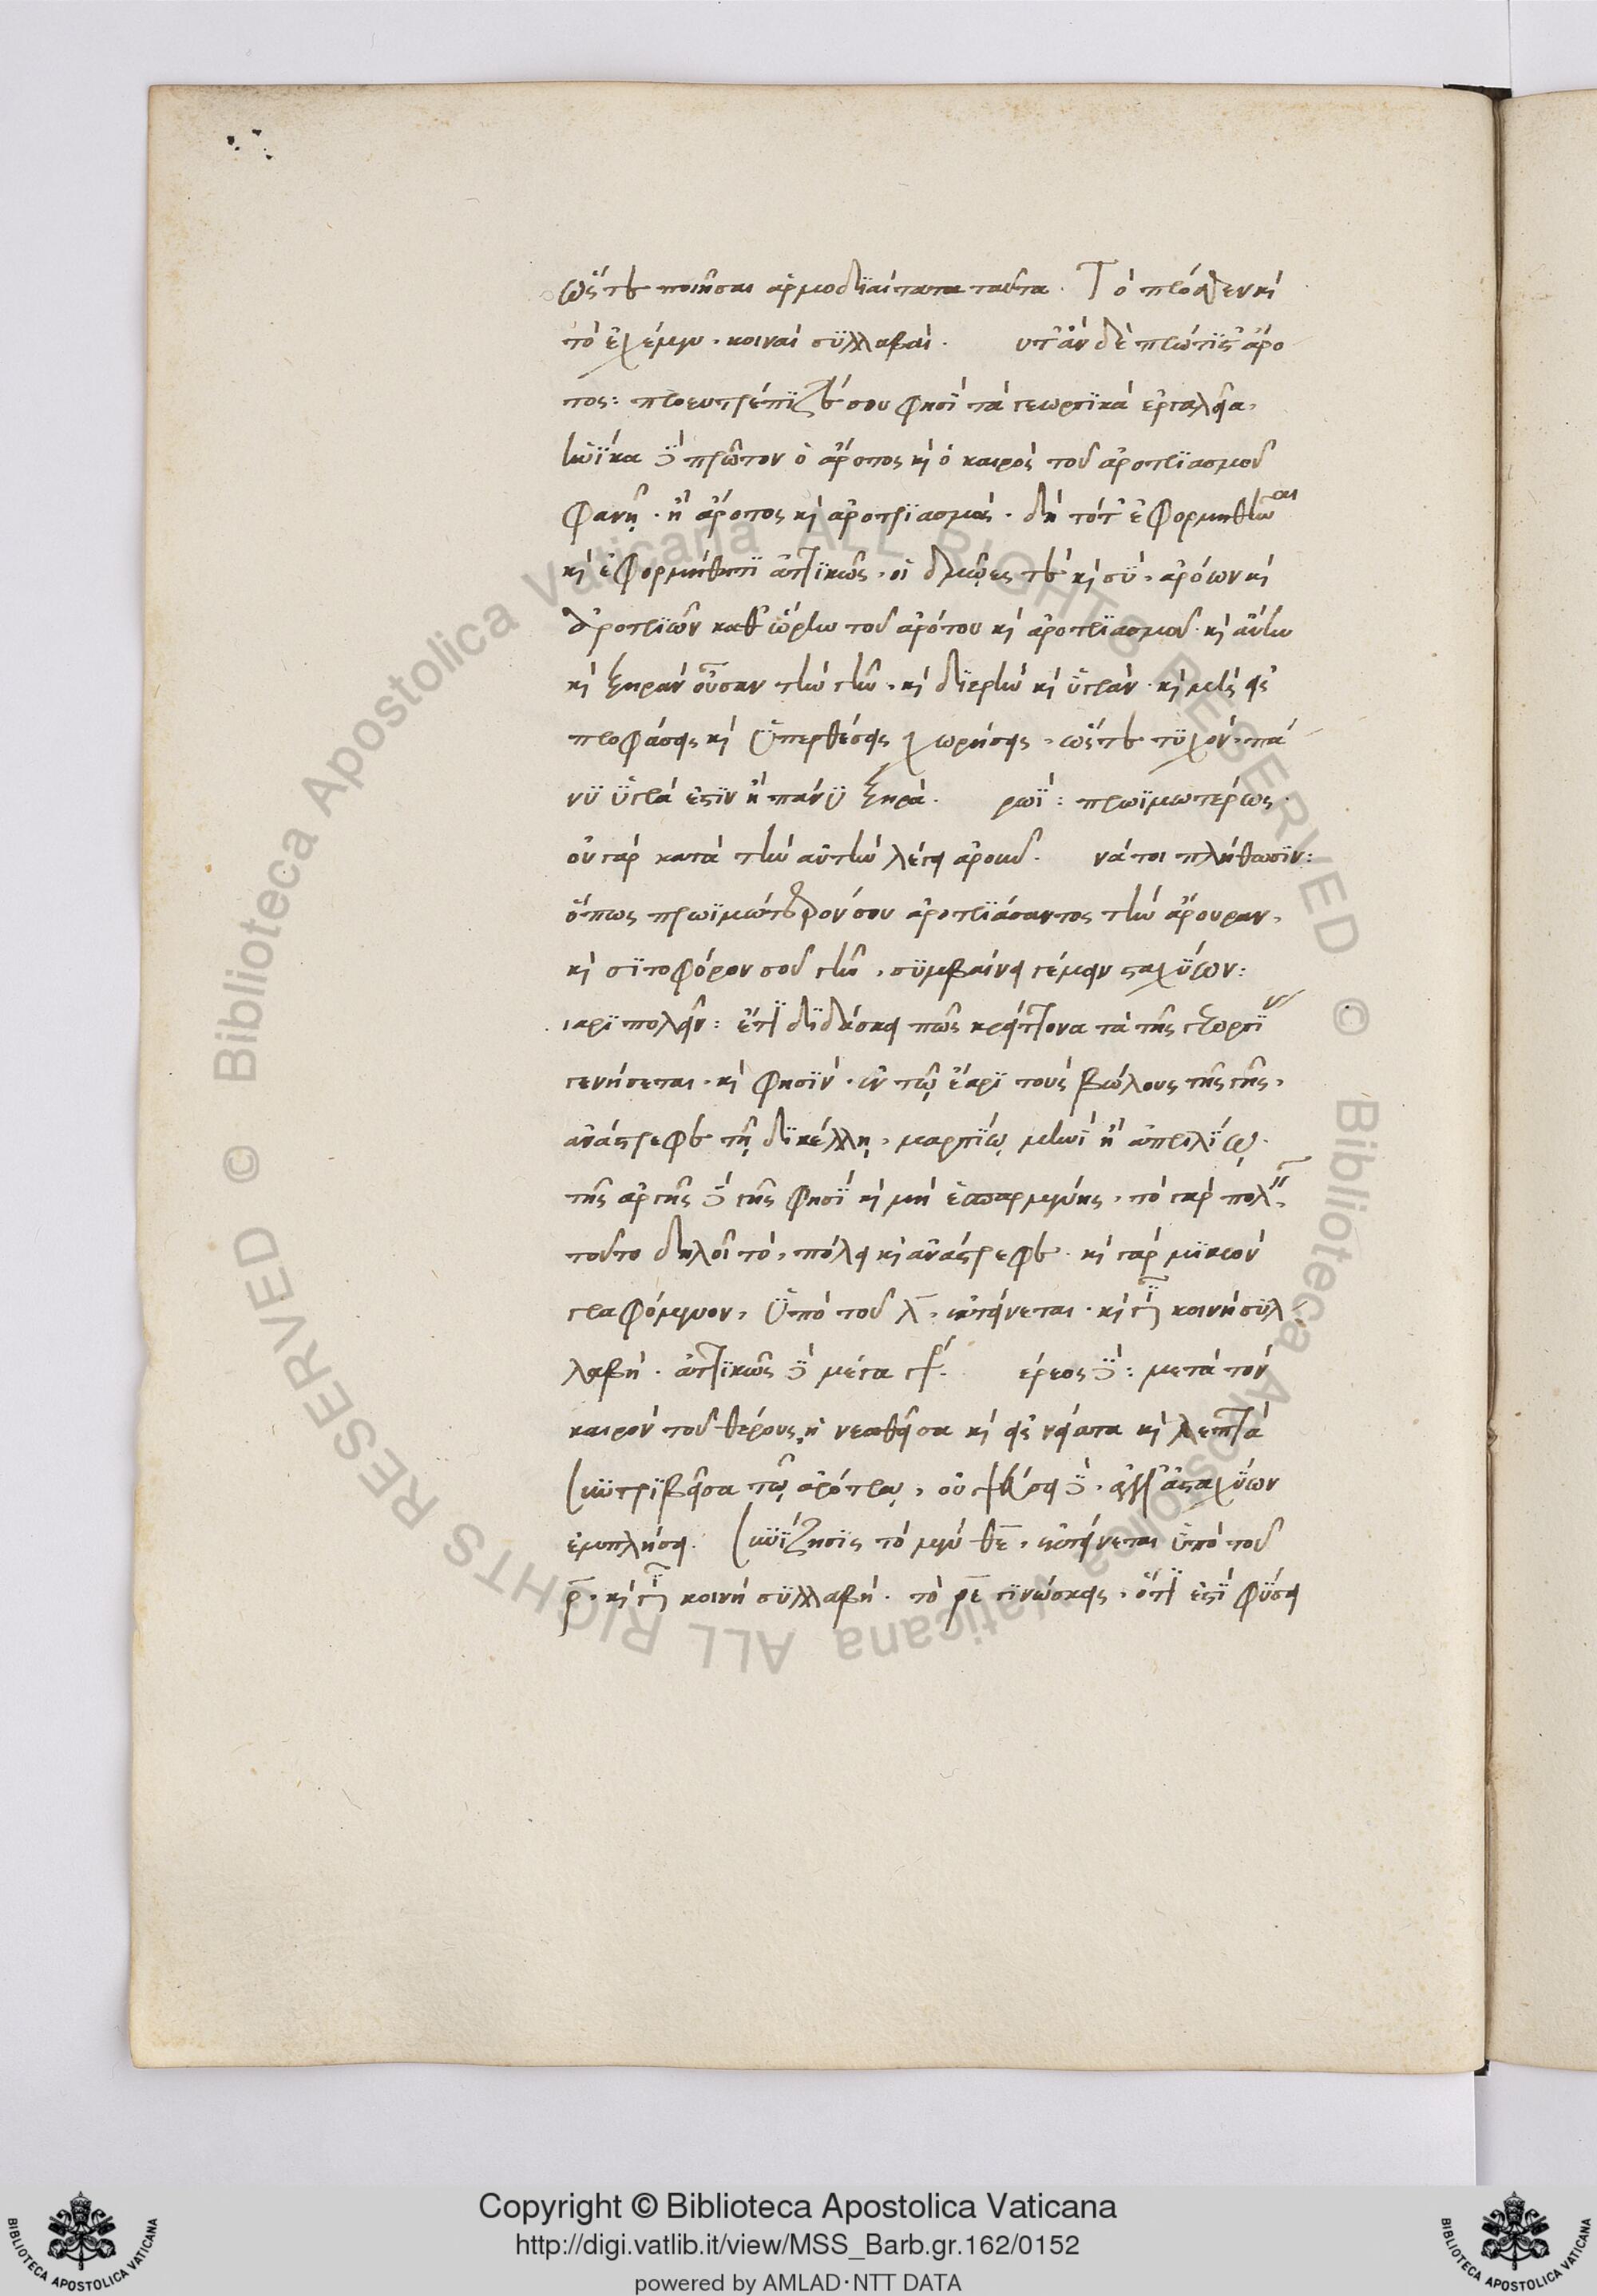 ὥστε ποιῆσαι ἁρμοδιαίτατα ταῦτα. Τὸ πρόσθεν καὶ
τὸ ἐχέμεν. κοιναὶ συλλαβαί. υτ' ἂν δὲ πρώτιστ' ἄρο
τος: προευτρέπιζέ σου φησὶ τὰ γεωργικὰ ἐργαλεῖα,
ἡνίκα δὲ πρῶτον ὁ ἄροτος καὶ ὁ καιρὸς τοῦ ἀροτριασμοῦ
φανῇ. ἢ ἄροτος καὶ ἀροτριασμός. δὴ τότ' ἐφορμηθῆναι
καὶ ἐφορμήθητι ἀττικῶς, οἱ δμῶες τε καὶ σύ, ἀρόων καὶ
ἀροτριῶν καθ' ὥρην τοῦ ἀρότου καὶ ἀροτριασμοῦ. καὶ αὔην
καὶ ξηρὰν οὖσαν τὴν γῆν, καὶ διερὴν καὶ ὑγράν. καὶ μὴ εἰς
προφάσεις καὶ ὑπερθέσεις χωρήσῃς, ὥστε τυχόν, πά
νυ ὑγρά ἐστιν ἢ πάνυ ξηρά. ρωΐ: πρωϊμωτέρως.
οὐ γὰρ κατὰ τὴν αὐτὴν λέγει ἀροῦν. νά τοι πλήθωσιν:
ὅπως πρωϊμώτερόν σου ἀροτριάσαντος τὴν ἄρουραν,
καὶ σιτοφόρον σοῦ γῆν, συμβαίνῃ γέμειν σταχύων:
ιαρι πολεῖν: ἔτι διδάσκει πῶς κρείττονα τὰ τῆς γεωργί
γενήσεται. καὶ φησίν. ἐν τῷ ἔαρι τοὺς βώλους τῆς γῆς,
ἀνάστρεφε τῇ δικέλλῃ, μαρτίῳ μηνὶ ἢ ἀπριλίῳ.
τῆς ἀργῆς δὲ γῆς φησὶ καὶ μὴ ἐσπαρμένης, τὸ γὰρ πολ
τοῦτο δηλοῖ τὸ, πόλει καὶ ἀνάστρεφε. καὶ γὰρ μικρὸν
γραφόμενον, ὑπὸ τοῦ λ, ἐκτείνεται. καὶ ἔστι κοινὴ συλ
λαβή. ἀττικῶς δὲ μέγα γρ. έρεος δὲ: μετὰ τὸν
καιρὸν τοῦ θέρους ἡ νεαθεῖσα καὶ εἰς νείατα καὶ λεπτὰ
συντριβεῖσα τῷ ἀρότρῳ, οὐ ψεύσει δὲ, ἀλλὰ σταχύων
ἐμπλήσει. συνίζησις τὸ μὲν θε, ἐκτείνεται ὑπὸ τοῦ
ρ, καὶ ἔστι κοινὴ συλλαβή. τὸ ρε γινώσκεις, ὅτι ἐστὶ φύσει